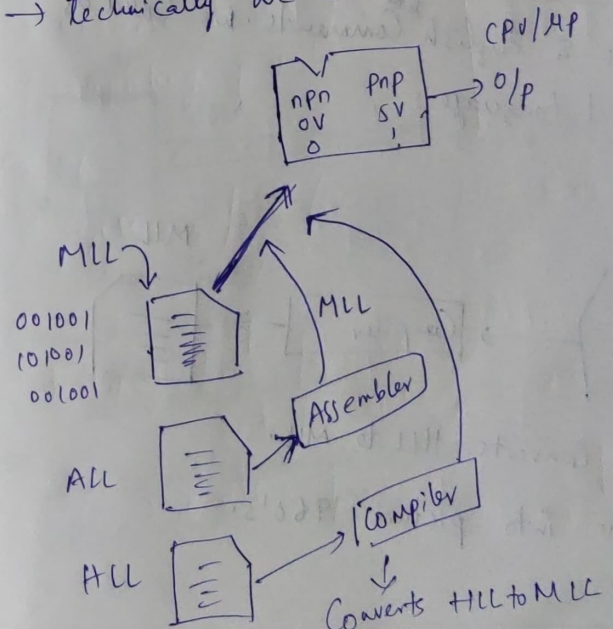 → Technically
CPU/MP
npn pnp
0V 5V
0 1
O/P
MLL
001001
101001
001001
MLL
Assembler
ALL
Compiler
HLL
Converts HLL to MLL